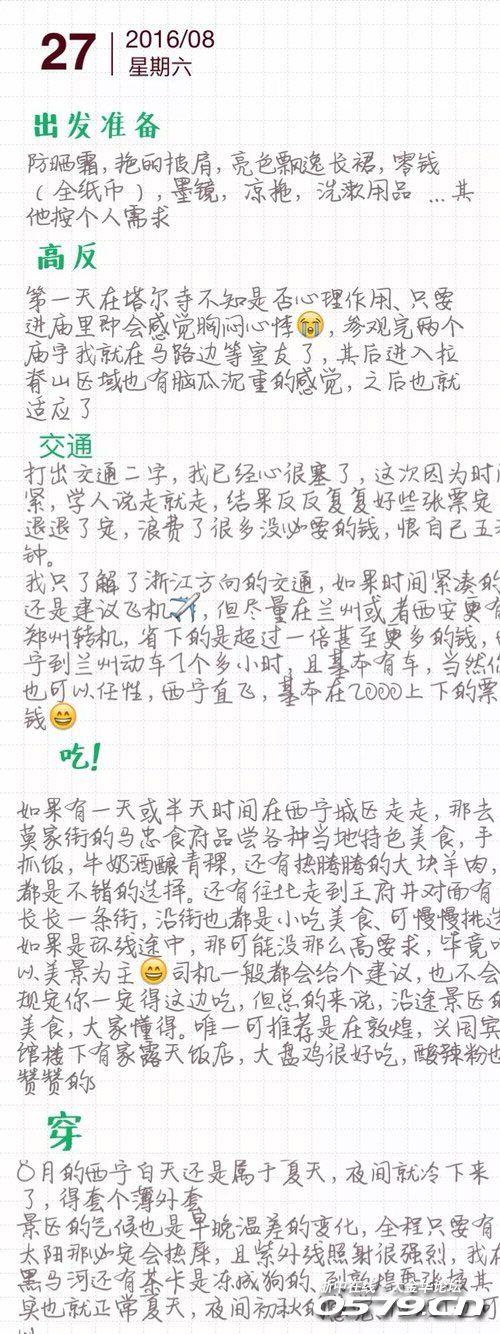 27
2016/08
星期六
出发准备
防晒霜,艳丽披肩,亮色飘逸长裙,零钱
(全纸币),墨镜,凉拖,洗漱用品 ...其
他按个人需求
高反
第一天在塔尔寺不知是否心理作用、只要
进庙里即会感觉胸闷心悸😭,参观完两个
庙宇我就在马路边等室友了,其后进入拉
脊山区域也有脑瓜沉重的感觉,之后也就
适应了
交通
打出交通二字,我已经心很塞了,这次因为时
紧,学人说走就走,结果反反复复好些张票定
退退了定,浪费了很多没必要的钱,恨自己五
钟。
我只了解了浙江方向的交通,如果时间紧凑的
还是建议飞机✈️,但尽量在兰州或者西安更有
郑州转机,省下的是超过一倍甚至更多的钱,
宁到兰州动车1个多小时,且基本有车,当然
也可以任性,西宁直飞,基本在2000上下的票
钱😄
吃!
如果有一天或半天时间在西宁城区走走,那去
莫家街的马忠食府品尝各种当地特色美食,手
抓饭,牛奶酒酿青稞,还有热腾腾的大块羊肉,
都是不错的选择。还有往北走到王府井对面有
长长一条街,沿街也都是小吃美食、可慢慢挑选
如果是环线途中,那可能没那么高要求,毕竟
以美景为主😄司机一般都会给个建议,也不会
规定你一定得这边吃,但总的来说,沿途景区的
美食,大家懂得。唯一可推荐是在敦煌,兴国宾
馆楼下有家露天饭店,大盘鸡很好吃,酸辣粉也
赞赞的
穿
8月的西宁白天还是属于夏天,夜间就冷下来
了,得套个薄外套
景区的气候也是早晚温差的变化,全程只要有
太阳那必定会热屎,且紫外线照射很强烈,我在
黑马河还有茶卡是冻成狗的,到敦煌张掖其
实也就正常夏天,夜间初秋的
0579.cn